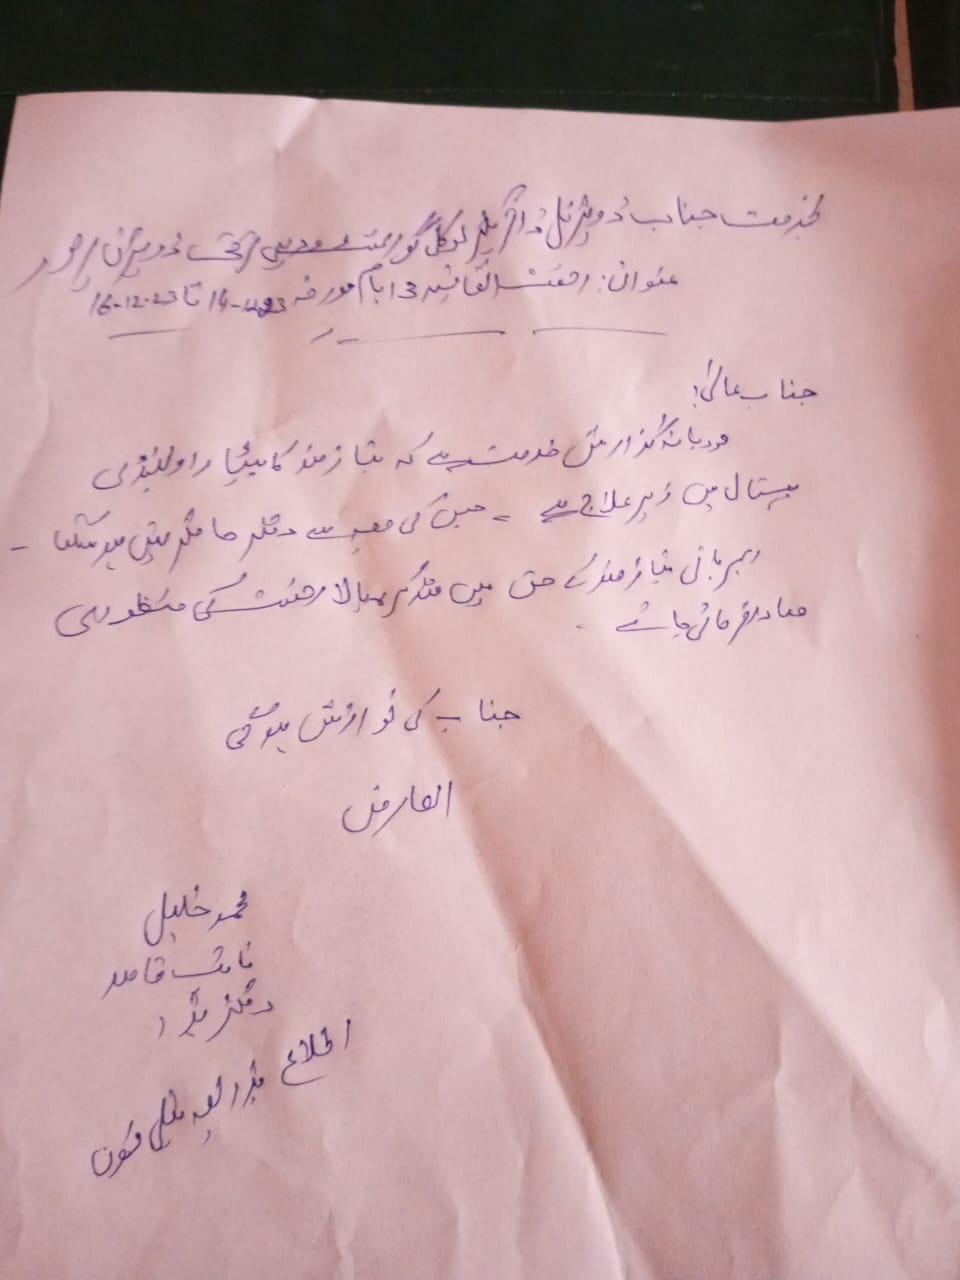 بخدمت جناب ڈویژنل ڈائریکٹر لوکل گورنمنٹ و دیہی ترقی ڈویژن
عنوان: رخصت اتفاقیہ 3 ایام مورخہ 14-12-23 تا 16-12-23
جناب عالی!
مودبانہ گزارش خدمت ہے کہ نیازمند کا بیٹا راولپنڈی
ہسپتال میں زیر علاج ہے ۔ جس کی وجہ سے دفتر حاضر نہیں ہو سکتا ۔
مہربانی نیازمند کے حق میں متذکرہ بالا رخصت کی منظوری
صادر فرمائی جائے ۔
جناب کی نوازش ہو گی
العارض
محمد خلیل
نائب قاصد
دفتر ہذا
اطلاع بذریعہ ٹیلی فون